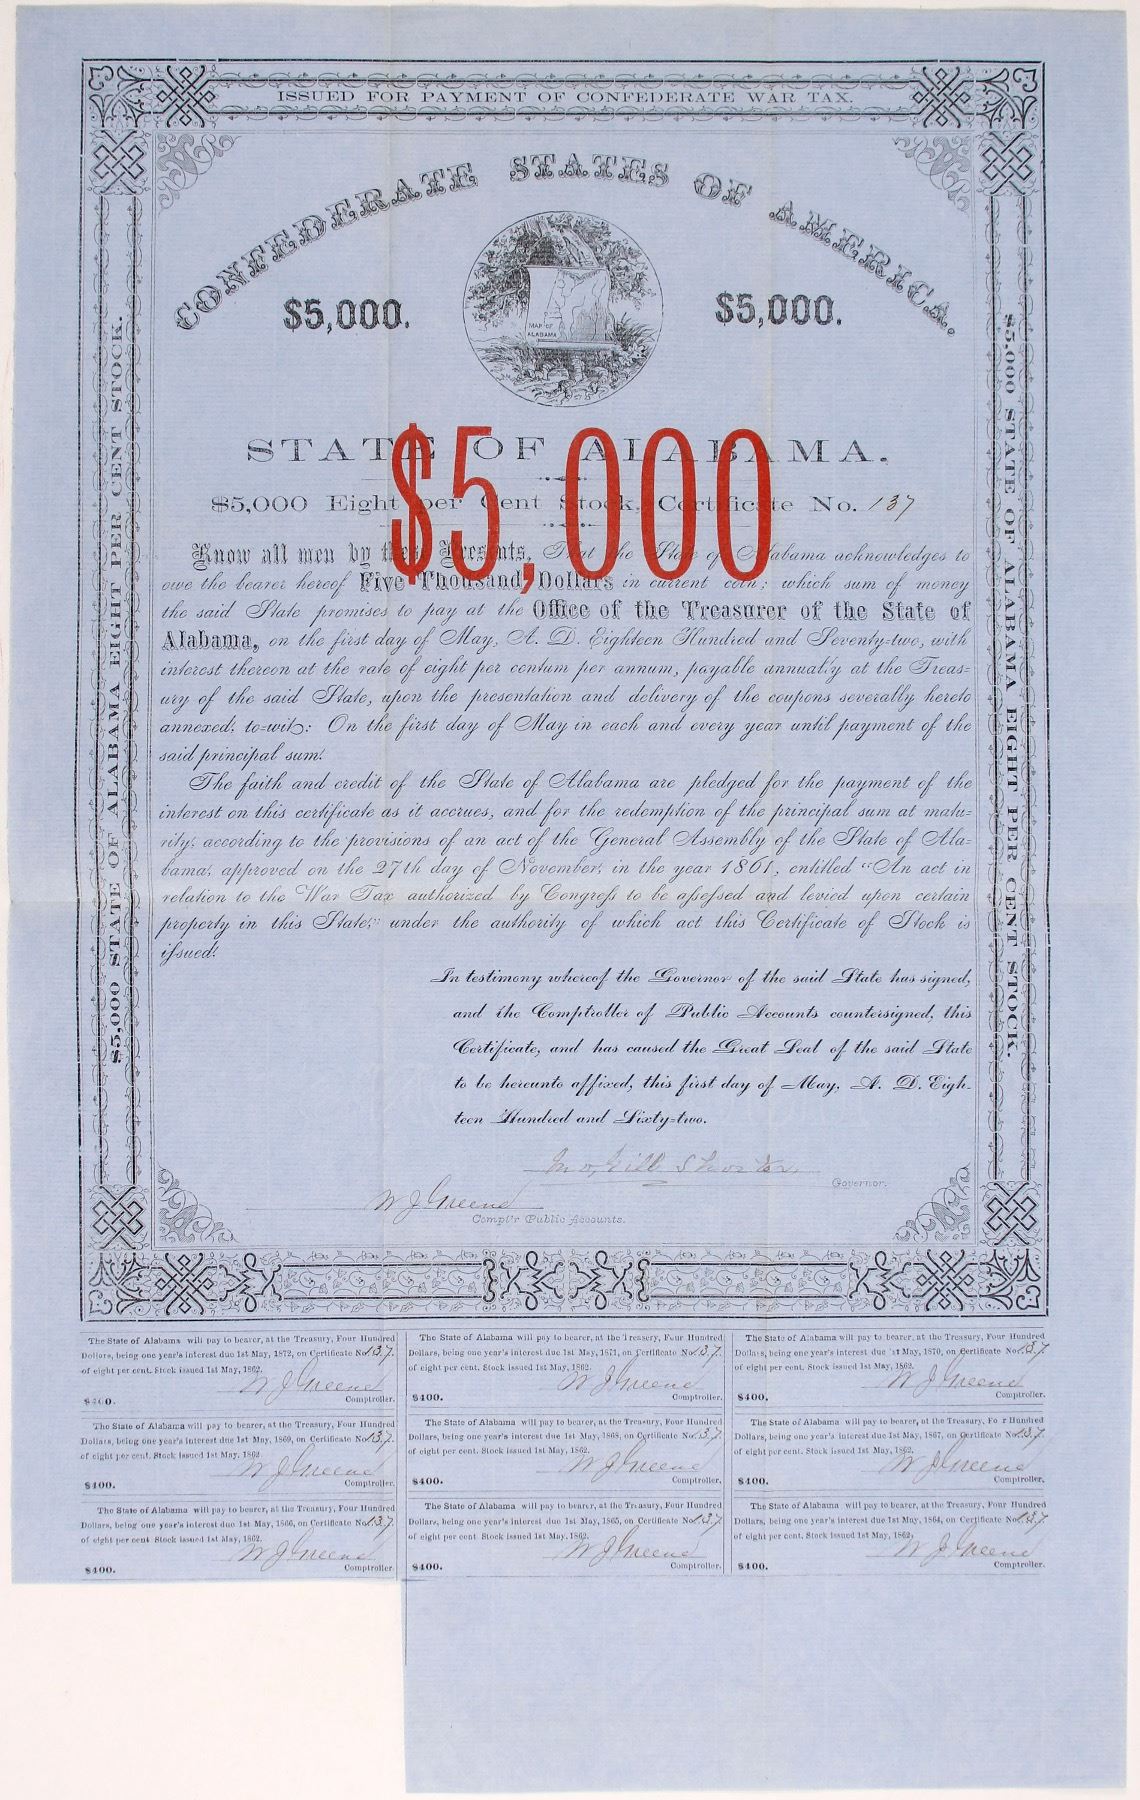 ISSUED FOR PAYMENT OF CONFEDERATE WAR TAX.
CONFEDERATE STATES OF AMERICA.
$5,000.
$5,000.
MAP OF
ALABAMA
STATE OF ALABAMA.
$5,000
$5,000 Eight per Cent Stock, Certificate No. 137
Know all men by these Presents, That the State of Alabama acknowledges to
owe the bearer hereof Five Thousand Dollars in current coin; which sum of money
the said State promises to pay at the Office of the Treasurer of the State of
Alabama, on the first day of May, A. D. Eighteen Hundred and Seventy-two, with
interest thereon at the rate of eight per centum per annum, payable annually at the Treas-
ury of the said State, upon the presentation and delivery of the coupons severally hereto
annexed, to-wit: On the first day of May in each and every year until payment of the
said principal sum.
The faith and credit of the State of Alabama are pledged for the payment of the
interest on this certificate as it accrues, and for the redemption of the principal sum at matu-
rity, according to the provisions of an act of the General Assembly of the State of Ala-
bama, approved on the 27th day of November, in the year 1861, entitled "An act in
relation to the War Tax authorized by Congress to be assessed and levied upon certain
property in this State," under the authority of which act this Certificate of Stock is
issued.
In testimony whereof the Governor of the said State has signed,
and the Comptroller of Public Accounts countersigned, this
Certificate, and has caused the Great Seal of the said State
to be hereunto affixed, this first day of May, A. D. Eigh-
teen Hundred and Sixty-two.
Jno, Gill Shorter,
Governor.
W J Greene
Compt'r Public Accounts.
$5,000 STATE OF ALABAMA EIGHT PER CENT STOCK.
$5,000 STATE OF ALABAMA EIGHT PER CENT STOCK.
The State of Alabama will pay to bearer, at the Treasury, Four Hundred
Dollars, being one year's interest due 1st May, 1872, on Certificate No. 137.
of eight per cent. Stock issued 1st May, 1862.
W J Greene
$400. Comptroller.
The State of Alabama will pay to bearer, at the Treasury, Four Hundred
Dollars, being one year's interest due 1st May, 1871, on Certificate No. 137.
of eight per cent. Stock issued 1st May, 1862.
W J Greene
$400. Comptroller.
The State of Alabama will pay to bearer, at the Treasury, Four Hundred
Dollars, being one year's interest due 1st May, 1870, on Certificate No. 137.
of eight per cent. Stock issued 1st May, 1862.
W J Greene
$400. Comptroller.
The State of Alabama will pay to bearer, at the Treasury, Four Hundred
Dollars, being one year's interest due 1st May, 1869, on Certificate No. 137.
of eight per cent. Stock issued 1st May, 1862
W J Greene
$400. Comptroller.
The State of Alabama will pay to bearer, at the Treasury, Four Hundred
Dollars, being one year's interest due 1st May, 1868, on Certificate No. 137.
of eight per cent. Stock issued 1st May, 1862.
W J Greene
$400. Comptroller.
The State of Alabama will pay to bearer, at the Treasury, Four Hundred
Dollars, being one year's interest due 1st May, 1867, on Certificate No. 137.
of eight per cent. Stock issued 1st May, 1862.
W J Greene
$400. Comptroller.
The State of Alabama will pay to bearer, at the Treasury, Four Hundred
Dollars, being one year's interest due 1st May, 1866, on Certificate No. 137.
of eight per cent Stock issued 1st May, 1862.
W J Greene
$400. Comptroller.
The State of Alabama will pay to bearer, at the Treasury, Four Hundred
Dollars, being one year's interest due 1st May, 1865, on Certificate No. 137.
of eight per cent Stock issued 1st May, 1862.
W J Greene
$400. Comptroller.
The State of Alabama will pay to bearer, at the Treasury, Four Hundred
Dollars, being one year's interest due 1st May, 1864, on Certificate No. 137.
of eight per cent. Stock issued 1st May, 1862,
W J Greene
$400. Comptroller.